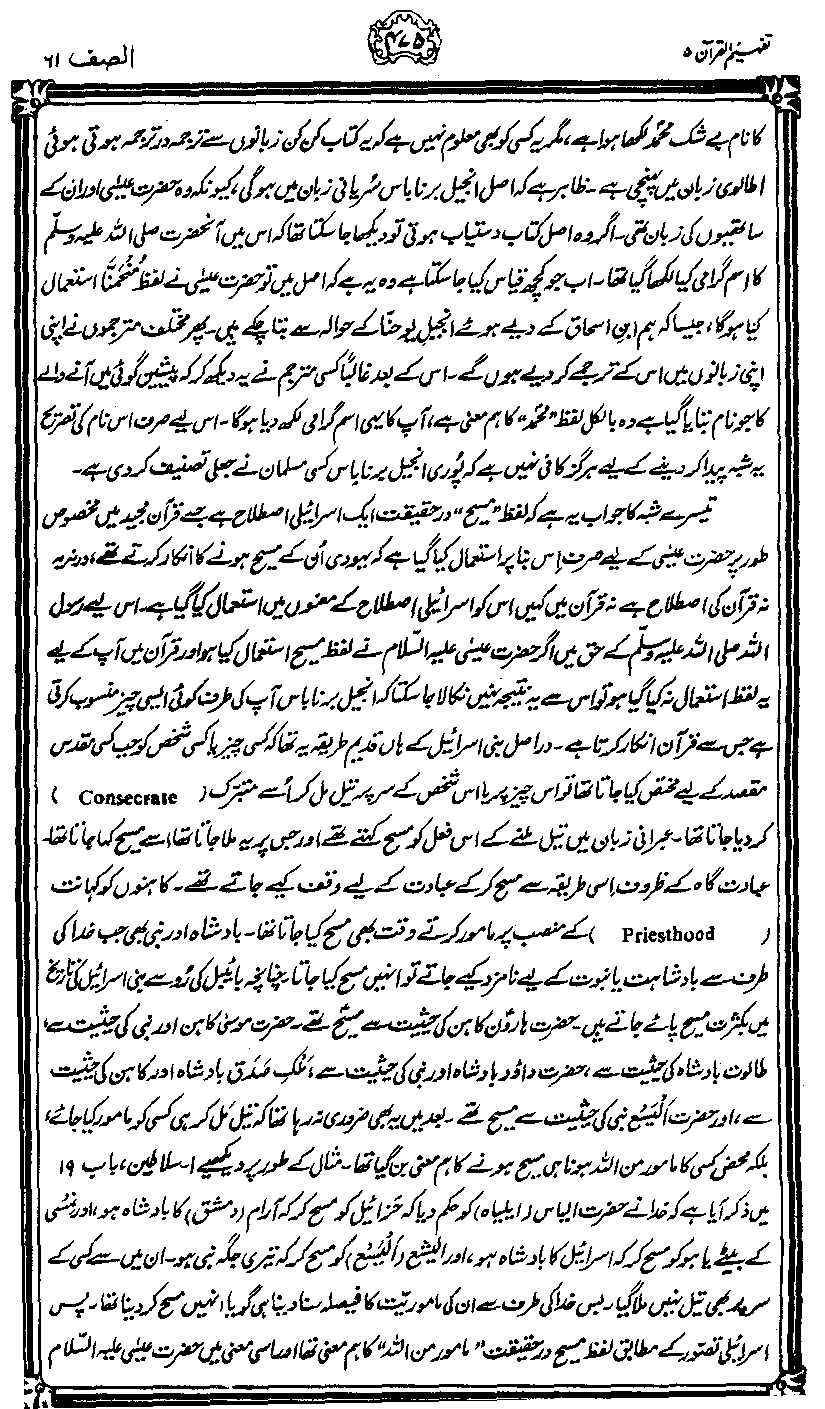 تفہیم القرآن ۵
۴۷۵
الصف ۶۱
کا نام بے شک محمدؐ لکھا ہوا ہے، مگر یہ کسی کو بھی معلوم نہیں ہے کہ یہ کتاب کن کن زبانوں سے ترجمہ در ترجمہ ہوتی ہوئی
اطالوی زبان میں پہنچی ہے۔ ظاہر ہے کہ اصل انجیل برناباس سُریانی زبان میں ہوگی، کیونکہ وہ حضرت عیسٰی اور ان کے
ساتھیوں کی زبان تھی۔ اگر وہ اصل کتاب دستیاب ہوتی تو دیکھا جا سکتا تھا کہ اس میں آنحضرت صلی اللہ علیہ وسلّم
کا اِسم گرامی کیا لکھا گیا تھا۔ اب جو کچھ قیاس کیا جا سکتا ہے وہ یہ ہے کہ اصل میں تو حضرت عیسٰی نے لفظ مُنْحَمَنَّا استعمال
کیا ہوگا، جیسا کہ ہم ابنِ اسحاق کے دیے ہوئے انجیل یوحنّا کے حوالہ سے بتا چکے ہیں۔ پھر مختلف مترجموں نے اپنی
اپنی زبانوں میں اس کے ترجمے کر دیے ہوں گے۔ اس کے بعد غالباً کسی مترجم نے یہ دیکھ کر کہ پیشین گوئی میں آنے والے
کا جو نام بتایا گیا ہے وہ بالکل لفظ "محمّد" کا ہم معنی ہے، آپ کا یہی اسم گرامی لکھ دیا ہوگا۔ اس لیے صرف اس نام کی تصریح
یہ شبہ پیدا کر دینے کے لیے ہرگز کافی نہیں ہے کہ پُوری انجیل برناباس کسی مسلمان نے جعلی تصنیف کر دی ہے۔
تیسرے شبہ کا جواب یہ ہے کہ لفظ "مسیح" در حقیقت ایک اسرائیلی اصطلاح ہے جسے قرآن مجید میں مخصوص
طور پر حضرت عیسٰی کے لیے صرف اِس بنا پر استعمال کیا گیا ہے کہ یہودی اُن کے مسیح ہونے کا انکار کرتے تھے، ورنہ یہ
نہ قرآن کی اصطلاح ہے نہ قرآن میں کہیں اس کو اسرائیلی اصطلاح کے معنوں میں استعمال کیا گیا ہے۔ اس لیے رسول
اللہ صلی اللہ علیہ وسلّم کے حق میں اگر حضرت عیسٰی علیہ السّلام نے لفظ مسیح استعمال کیا ہو اور قرآن میں آپ کے لیے
یہ لفظ استعمال نہ کیا گیا ہو تو اس سے یہ نتیجہ نہیں نکالا جا سکتا کہ انجیل برناباس آپ کی طرف کوئی ایسی چیز منسوب کرتی
ہے جس سے قرآن انکار کرتا ہے۔ در اصل بنی اسرائیل کے ہاں قدیم طریقہ یہ تھا کہ کسی چیز یا کسی شخص کو جب کسی مقدس
مقصد کے لیے مختص کیا جاتا تھا تو اس چیز پر یا اس شخص کے سر پر تیل مل کر اُسے متبرّک (Consecrate)
کر دیا جاتا تھا۔ عبرانی زبان میں تیل ملنے کے اس فعل کو مسح کہتے تھے اور جس پر یہ ملا جاتا تھا اسے مسیح کہا جاتا تھا۔
عبادت گاہ کے ظروف اِسی طریقہ سے مسح کر کے عبادت کے لیے وقف کیے جاتے تھے۔ کاہنوں کو کہانت
(Priesthood) کے منصب پر مامور کرتے وقت بھی مسح کیا جاتا تھا۔ بادشاہ اور نبی بھی جب خدا کی
طرف سے بادشاہت یا نبوت کے لیے نامزد کیے جاتے تو انہیں مسح کیا جاتا۔ چنانچہ بائیبل کی رُو سے بنی اسرائیل کی تاریخ
میں بکثرت مسیح پائے جاتے ہیں۔ حضرت ہارُون کاہن کی حیثیت سے مسیح تھے۔ حضرت موسٰی کاہن اور نبی کی حیثیت سے،
طالوت بادشاہ کی حیثیت سے، حضرت داؤد بادشاہ اور نبی کی حیثیت سے، مَلْکِ صَدَق بادشاہ اور کاہن کی حیثیت
سے، اور حضرت اَلْیَسَع نبی کی حیثیت سے مسیح تھے۔ بعد میں یہ بھی ضروری نہ رہا تھا کہ تیل مَل کر ہی کسی کو مامور کیا جائے،
بلکہ محض کسی کا مامور من اللہ ہونا ہی مسیح ہونے کا ہم معنی بن گیا تھا۔ مثال کے طور پر دیکھیے ۱۔ سلاطین، باب ۱۹
میں ذکر آیا ہے کہ خدا نے حضرت الیاس (ایلیاہ) کو حکم دیا کہ حَزائیل کو مسح کر کہ آرام (دمشق) کا بادشاہ ہو، اور نمسی
کے بیٹے یاہو کو مسح کر کہ اسرائیل کا بادشاہ ہو، اور الیشع (اَلْیَسَع) کو مسح کر کہ تیری جگہ نبی ہو۔ ان میں سے کسی کے
سر پر بھی تیل نہیں ملا گیا۔ بس خدا کی طرف سے ان کی ماموریّت کا فیصلہ سنا دینا ہی گویا انہیں مسح کر دینا تھا۔ پس
اسرائیلی تصوّر کے مطابق لفظ مسیح در حقیقت "مامور من اللہ" کا ہم معنی تھا اور اسی معنی میں حضرت عیسٰی علیہ السّلام